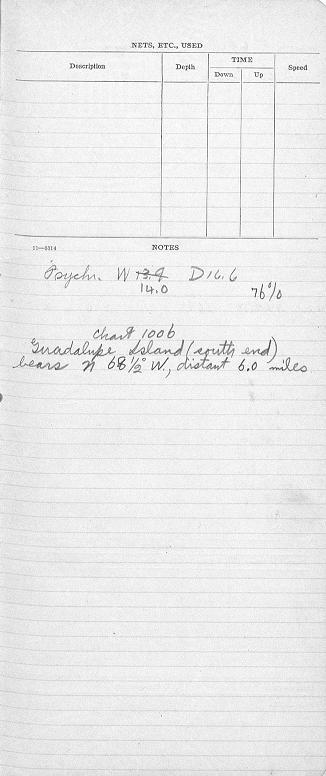 NETS, ETC., USED
Description Depth TIME Speed
Down Up
11—5314 NOTES
Psychr. W 13.9 D 16.6
14.0 76%
Chart 1006
Guadalupe Island (south end)
bears N 68½° W, distant 6.0 miles